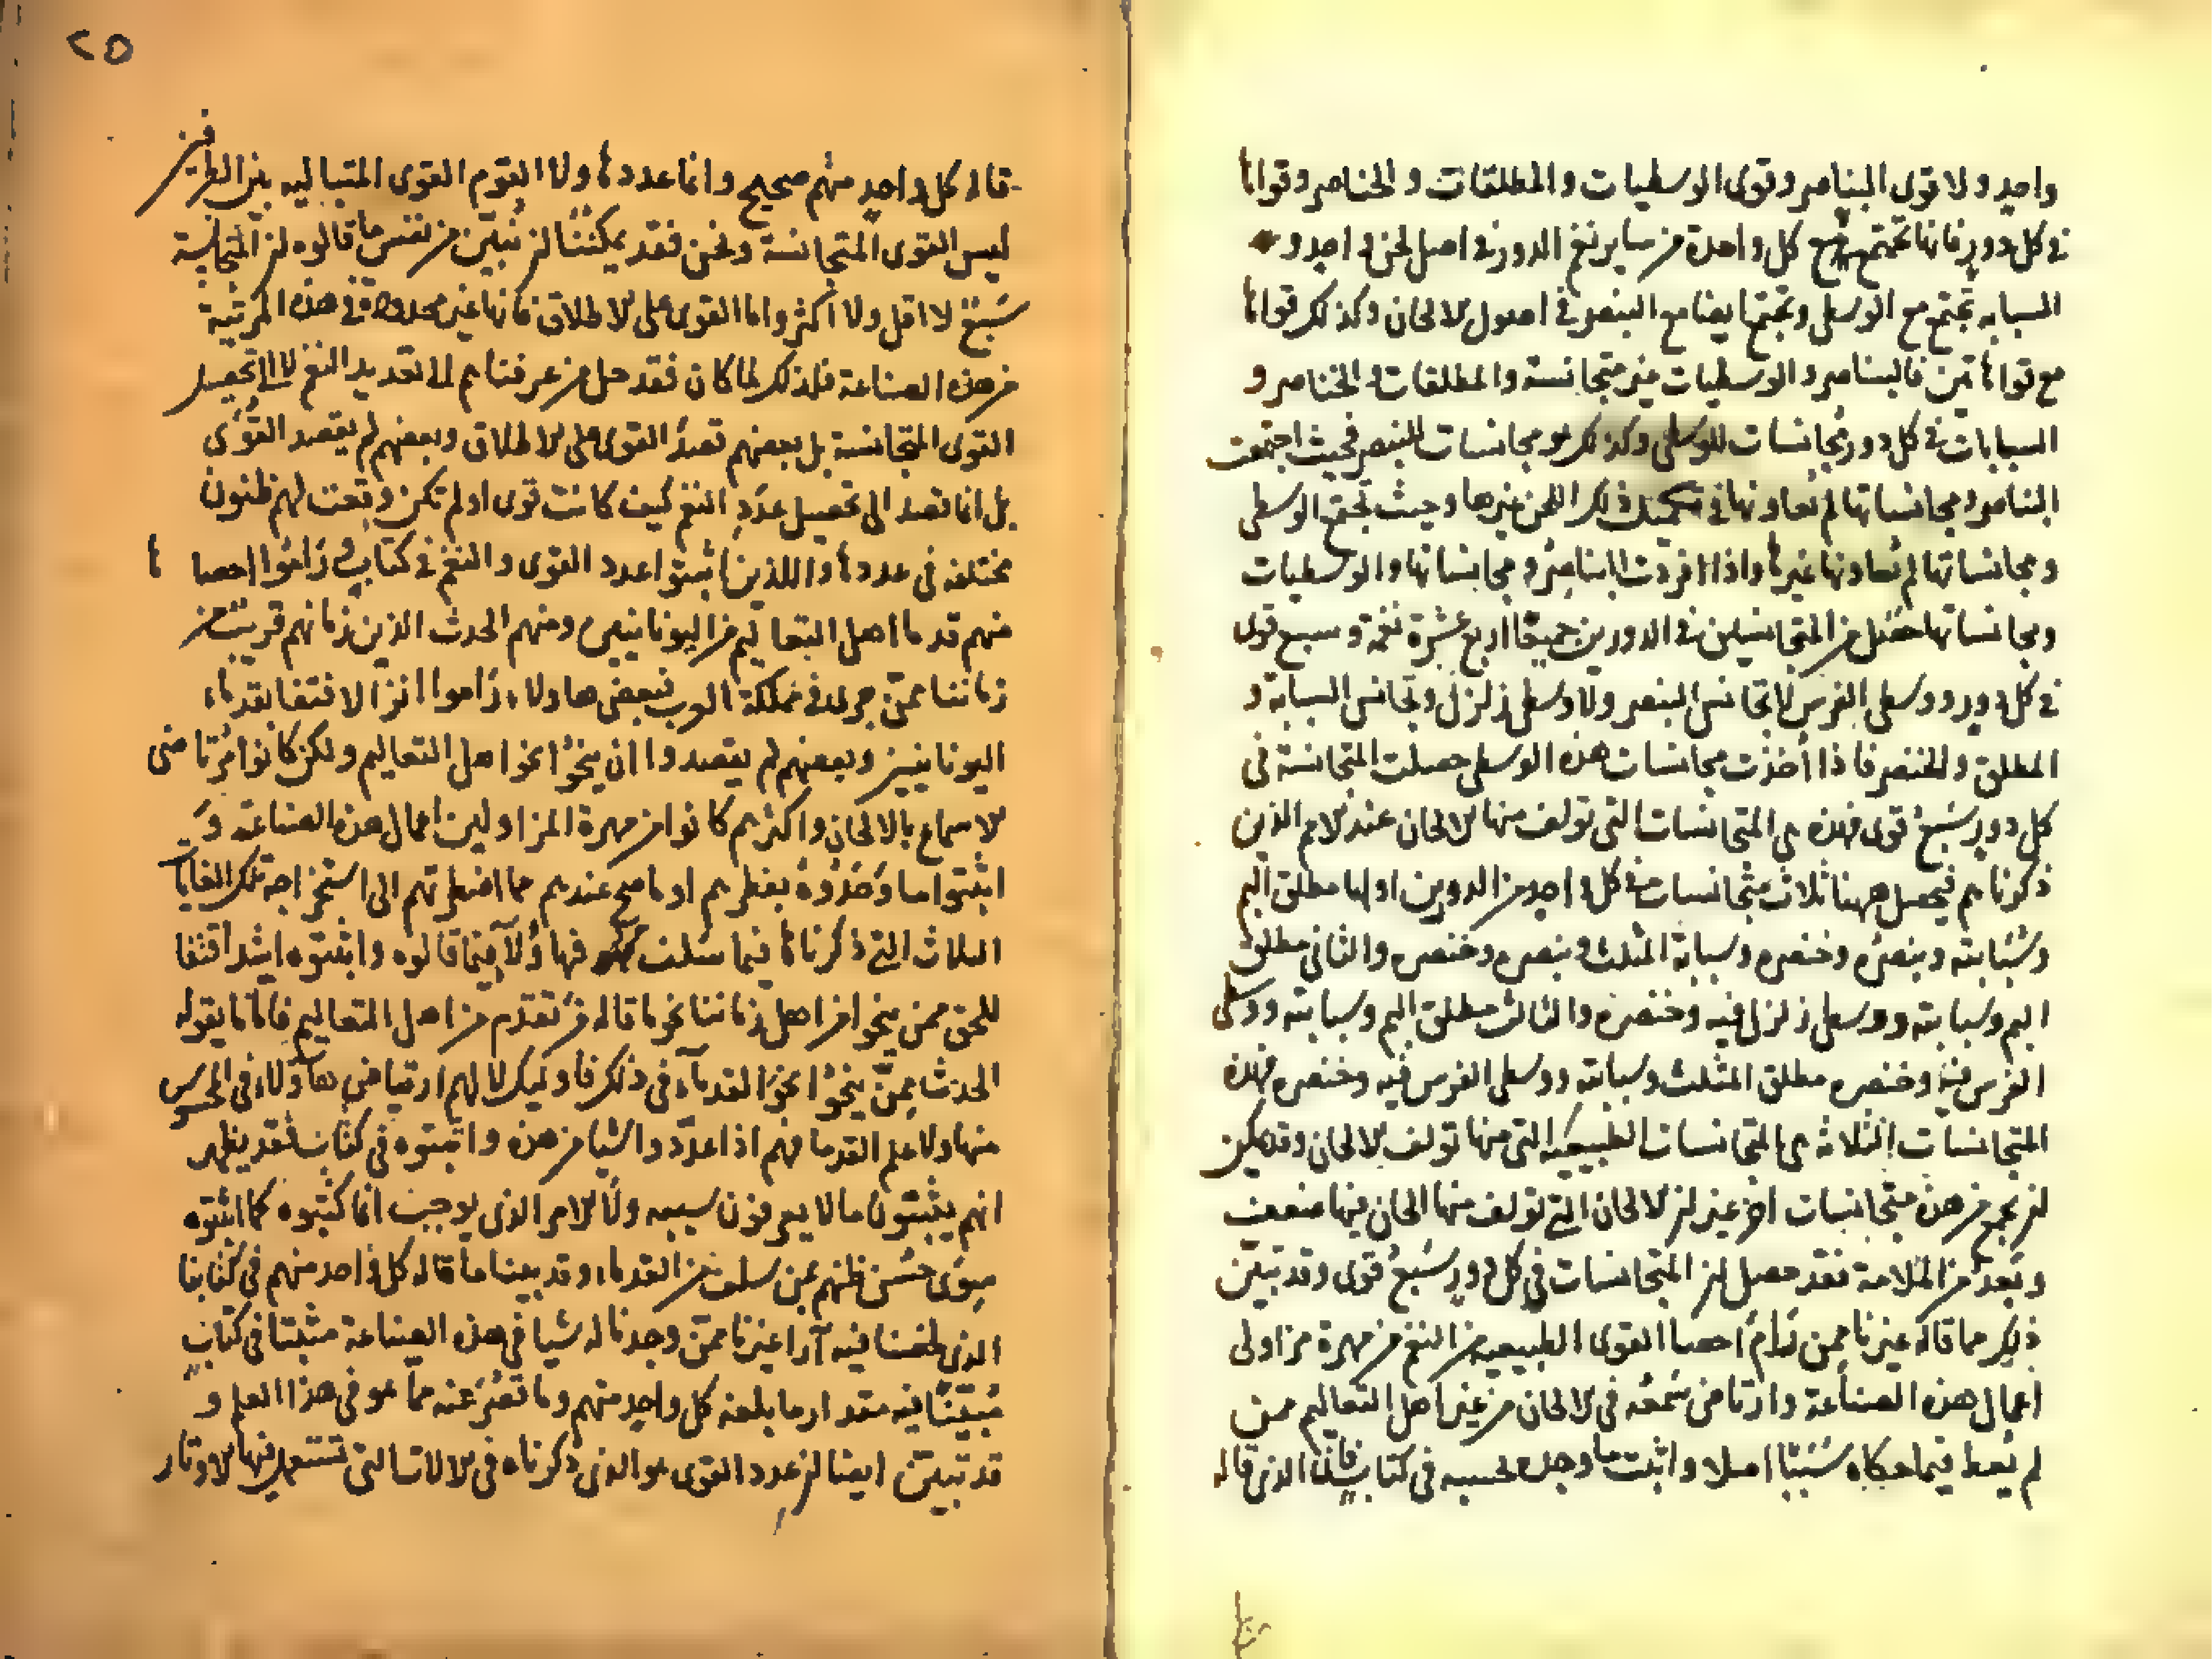 واحد ولا قوى البناصر وقوى الوسطيات والمطلقات والخناصر وقواها
في كل دور فانها تجتمع مع كل واحدة من ساير نغم الدور في اصل لحن واحد و
السبابه تجتمع مع الوسطى وتجتمع ايضا مع البنصر في اصول الالحان وكذلك قواها
مع قواها تين فالبناصر والوسطيات غير متجانسة والمطلقات والخناصر و
السبابات في كل دور مجانسات للوسطى وكذلك هو مجانسات للبنصر فحيث اجتمعت
البناصر ومجانساتها لم تعاونها في تكميل ذلك اللحن غيرها وحيث تجتمع الوسطى
ومجانساتها لم تعاونها غيرها واذا افردت البناصر ومجانساتها والوسطيات
ومجانساتها حصل من المتجانسين في الدورين جميعا اربع عشرة نغمة وسبع قوى
في كل دور ووسطى الفرس لا تجانس البنصر ولا وسطى زلزل وتجانس السبابة و
المطلق والخنصر فاذا اخذت مجانسات هذه الوسطى حصلت المتجانسة في
كل دور سبع قوى فهذه هي المتجانسات التي تولف منها الالحان عند الامم الذين
ذكرناهم فيحصل ههنا ثلاث متجانسات في كل واحد من الدورين اولها مطلق البم
وسبابته وبنصره وخنصره وسبابة المثلث وبنصره وخنصره والثاني مطلق
البم وسبابته ووسطى زلزل فيه وخنصره والثالث مطلق البم وسبابته ووسطى
الفرس فيه وخنصره مطلق المثلث وسبابته ووسطى الفرس فيه وخنصره فهذه
المتجانسات الثلاثة هي المتجانسات الطبيعية التي منها تولف الالحان وقد يمكن
ان يجمع من هذه متجانسات اخر غير ان الالحان التي تولف منها الحان فيها ضعف
وبعد من الملامة فقد حصل ان المتجانسات في كل دور سبع قوى وقد تبين
ذلك مما قاله غيرنا ممن رام احصا القوى الطبيعية من النغم من مهرة مزاولي
اعمال هذه الصناعة وارتاض سمعه في الالحان من غير اهل التعاليم ممن
لم يعط فيما حكاه سببا اصلا واثبت ما وجده بحسبه في كتاب فان الذي قاله
٢٥
قاله كل واحد منهم صحيح وانما عددها ولا القوم القوى المتباليه بين الطرفين
ليس القوى المتجانسة ونحن فقد يمكننا ان نبين من نفس ما قالوه ان المتجانسة
سبع لا اقل ولا اكثر واما القوى على الاطلاق فانها غير محدودة في هذه المرتبة
من هذه الصناعة فلذلك لما كان فقد حل من عرفناهم الى تحديد النغم لا الى تحصيل
القوى المتجانسة بل بعضهم تصد القوى على الاطلاق وبعضهم لم يقصد القوى
بل انما قصد الى تحصيل عدد النغم كيف كانت قوى او لم تكن وقعت لهم ظنون
مختلفه في عددها واللذين اثبتوا عدد القوى والنغم في كتاب وراموا احصاها
منهم قدما اهل التعاليم من اليونانيين ومنهم الحدث الذين زمانهم قريب من
زماننا ممن جرى في مملكة العرب فبعض هاولاء راموا الاقتفا لقدماء
اليونانيين وبعضهم لم يقصدوا ان ينحوا نحو اهل التعاليم ولكن كانوا مرتاضى
الاسماع بالالحان واكثرهم كانوا من مهرة المزاولين اعمال هذه الصناعة و
اثبتوا ما وجدوه بفطرهم او ما صح عندهم مما اضطرتهم الى استخراجه تلك الغايات
الثلاث التي ذكرناها فيما سلف فهاؤلآ فيما قالوه واثبتوه اشد اقتفا
للحق ممن ينحوا من اهل زماننا نحو ما قاله من تقدم من اهل التعاليم فاما ما يقوله
الحدث ممن ينحوا نحو القدماء في ذلك فاوليك لا لهم ارتياض هاولاء في المحسوس
منها ولا علم القدما فهم اذا عددوا اشيا من هذه واثبتوه في كتاب فقد يظهر
انهم يثبتون ما لا يعرفون سببه ولا الامر الذي يوجب انما كتبوه كما اثبتوه
سوى حسن ظنهم بمن سلف من القدماء وقد بينا ما قاله كل واحد منهم في كتابنا
الذي لخصنا فيه آرا غيرنا ممن وجدنا له شيا في هذه الصناعة مثبتا في كتاب
مبينا فيه مقدار ما بلغه كل واحد منهم وما تعبر عنه مما هو في هذا العلم و
قد تبين ايضا ان عدد القوى هو الذي ذكرناه في الالات التي تستعمل فيها الاوتار